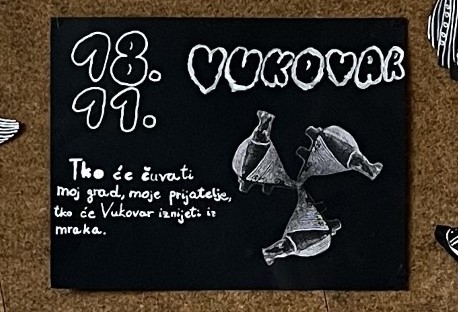 18. VUKOVAR
11.
Tko će čuvati
moj grad, moje prijatelje,
tko će Vukovar iznijeti iz
mraka.